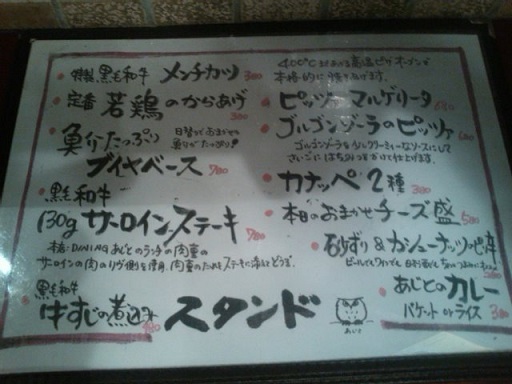 特製 黒毛和牛 メンチカツ 300
定番 若鶏のからあげ 300
魚介たっぷり
ブイヤベース 700
日替りおまかせ
魚介たっぷり!
黒毛和牛
130g サーロインステーキ 700
本格DINING あじとのランチの肉重の
サーロインの肉のリヴ側を使用。肉重のたれをステーキに添えてどうぞ。
黒毛和牛
牛すじの煮込み 400
400℃
本格的に焼き上げます。
ピッツァ マルゲリータ
ゴルゴンゾーラのピッツァ 600
ゴルゴンゾーラを少しクリーミーなソースにして
さいごにはちみつをかけて仕上げます。
カナッペ2種 300
本日のおまかせチーズ盛 500
砂ずり&カシューナッツ
ビールでもワインでも
あじとのカレー
バケット or ライス 300
スタンド
あじと